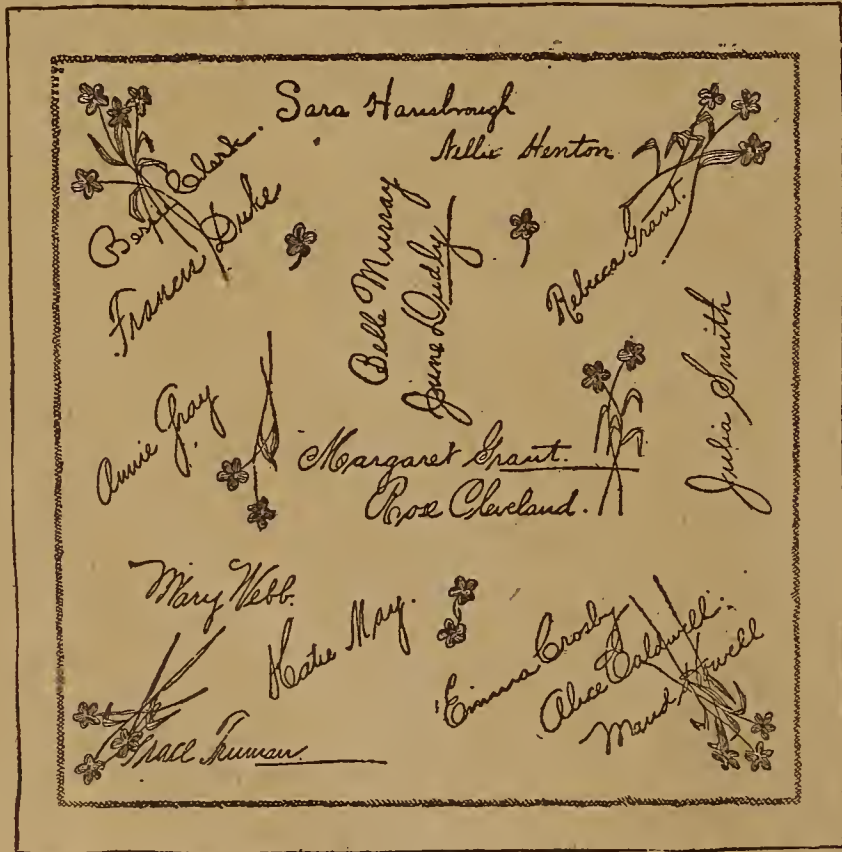 Sara Hansbrough
Nellie Henton
Clark.
Francis Duke
Belle Murray
June Dudly
Rebecca Grant.
Julia Smith
Annie Gray
Margaret Grant.
Rose Cleveland.
Mary Webb.
Katie May.
Emma Crosby
Alice Caldwell.
Maud Howell
Grace Truman